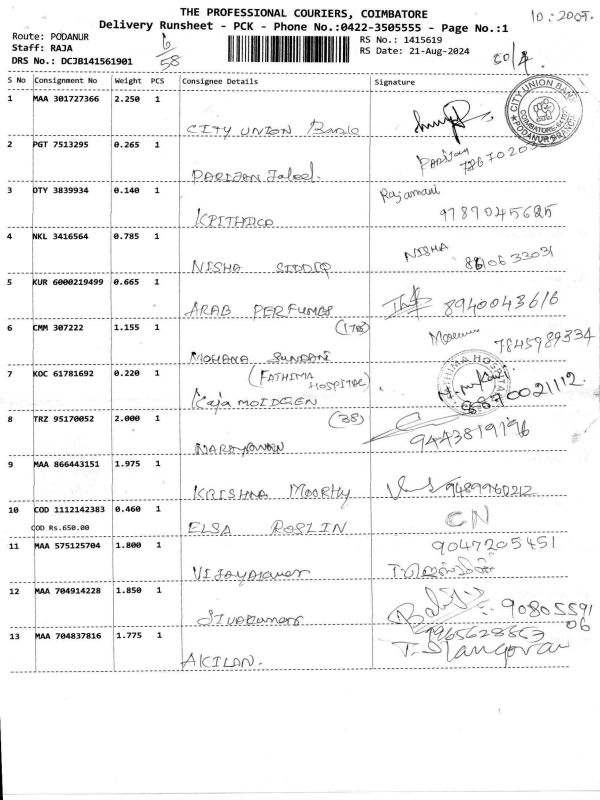 THE PROFESSIONAL COURIERS, COIMBATORE
10:2005.
Delivery Runsheet - PCK - Phone No.:0422-3505555 - Page No.:1
Route: PODANUR
6
RS No.: 1415619
Staff: RAJA
RS Date: 21-Aug-2024
DRS No.: DCJB141561901
58
S No Consignment No Weight PCS Consignee Details Signature
1 MAA 301727366 2.250 1
CITY UNION Bank
CITY UNION BANK
COIMBATORE
PODANUR BRANCH
2 PGT 7513295 0.265 1
PARIJAN Jaleel.
3 DTY 3839934 0.140 1 Rajamani
KRITHIKA 9787045625
4 NKL 3416564 0.785 1 NISHA
NISHA SIDDIQ
5 KUR 6000219499 0.665 1
ARAB PERFUMES 8940043616
6 CMM 307222 1.155 1 (178)
MOHANA SUNDARI 7845989334
7 KOC 61781692 0.220 1 (FATHIMA HOSPITAL)
Kaja MOIDEEN 8870021112.
8 TRZ 95170052 2.000 1 (38)
NARAYANAN 9443819196
9 MAA 866443151 1.975 1
KRISHNA MOORTHY 9489960212
10 COD 1112142383 0.460 1 CN
COD Rs.650.00
ELSA ROSLIN
11 MAA 575125704 1.800 1 9047205451
VIJAYAKUMAR
12 MAA 704914228 1.850 1
SIVAKUMAR 90805591
06
13 MAA 704837816 1.775 1 9965628553
AKILAN. T. Elangovan